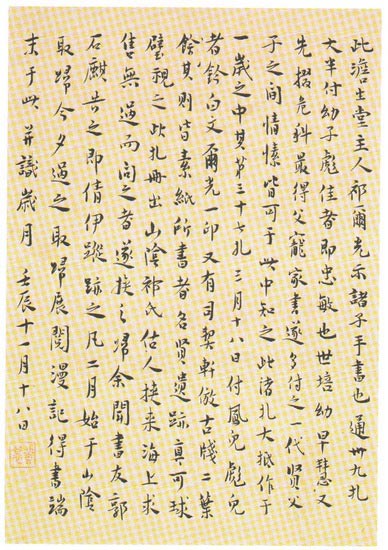 此澹生堂主人祁爾光示諸子手書也通卅九札
大半付幼子彪佳者即忠敏也世培幼早慧又
先掇危科最得父寵家書遂多付之一代賢父
子之间情愫皆可于此中知之此诸札大抵作于
一歲之中其第三十七札三月十八日付鳳兒彪兒
者鈐白文爾光一印又有司契軒倣古牋二葉
餘其則皆素紙所書者名贤遺跡真可球
璧視之此札冊出山陰祁氏估人挾来海上求
售無過而问之者遂挾之归余聞書友郭
石麒告之即倩伊蹤跡之凡二月始于山陰
取歸今夕過之取歸展閱漫記得書端
末于此并識歲月 壬辰十一月十八日